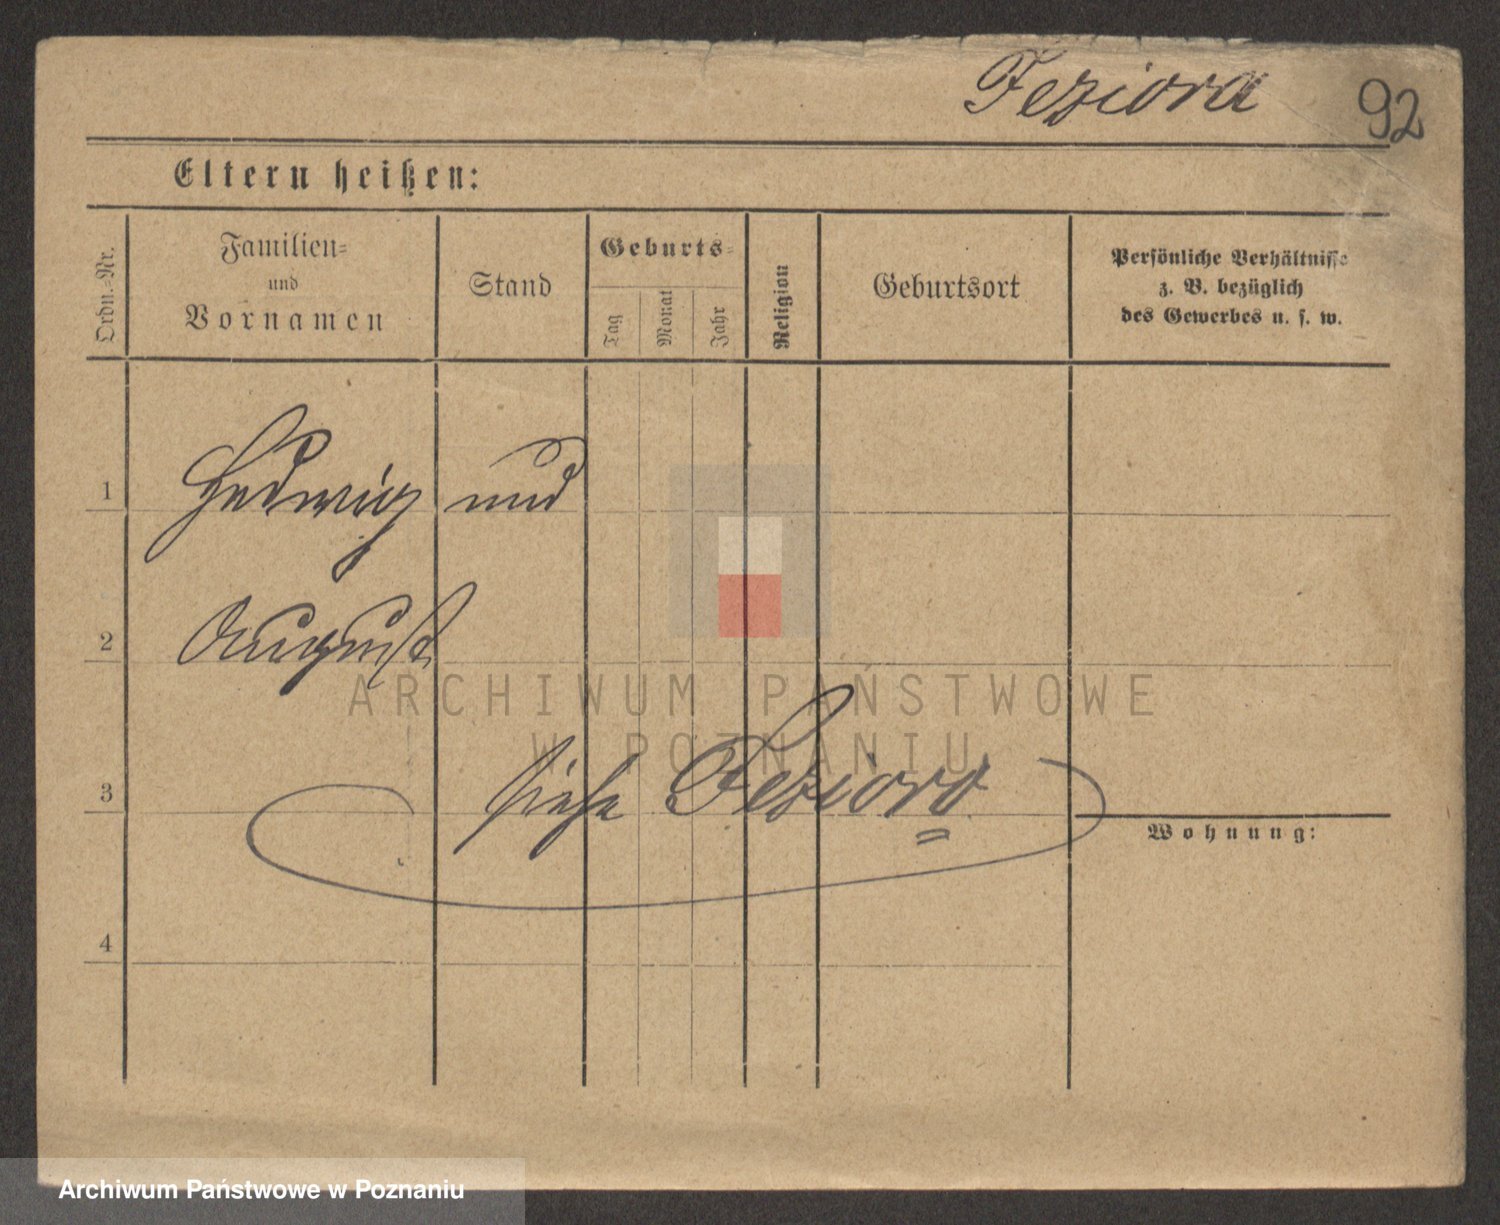 Jeziora 92
Eltern heißen:
Ordn.=Nr.
Familien=
und
Vornamen
Stand
Geburts=
Tag
Monat
Jahr
Religion
Geburtsort
Persönliche Verhältnisse
z. B. bezüglich
des Gewerbes u. s. w.
1 Hedwig und
2 August
ARCHIWUM PAŃSTWOWE
W POZNANIU
3 siehe Jezioro
Wohnung:
4
Archiwum Państwowe w Poznaniu